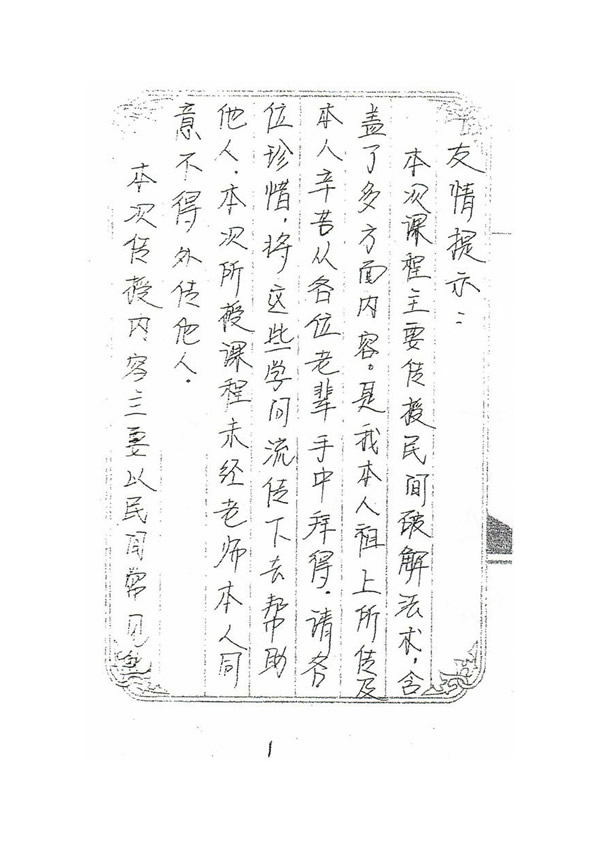 友情提示：
本次课程主要传授民间破解法术，含
盖了多方面内容。是我本人祖上所传及
本人辛苦从各位老辈手中拜得．请各
位珍惜，将这些学问流传下去帮助
他人．本次所授课程未经老师本人同
意不得外传他人．
本次传授内容主要以民间常见
1